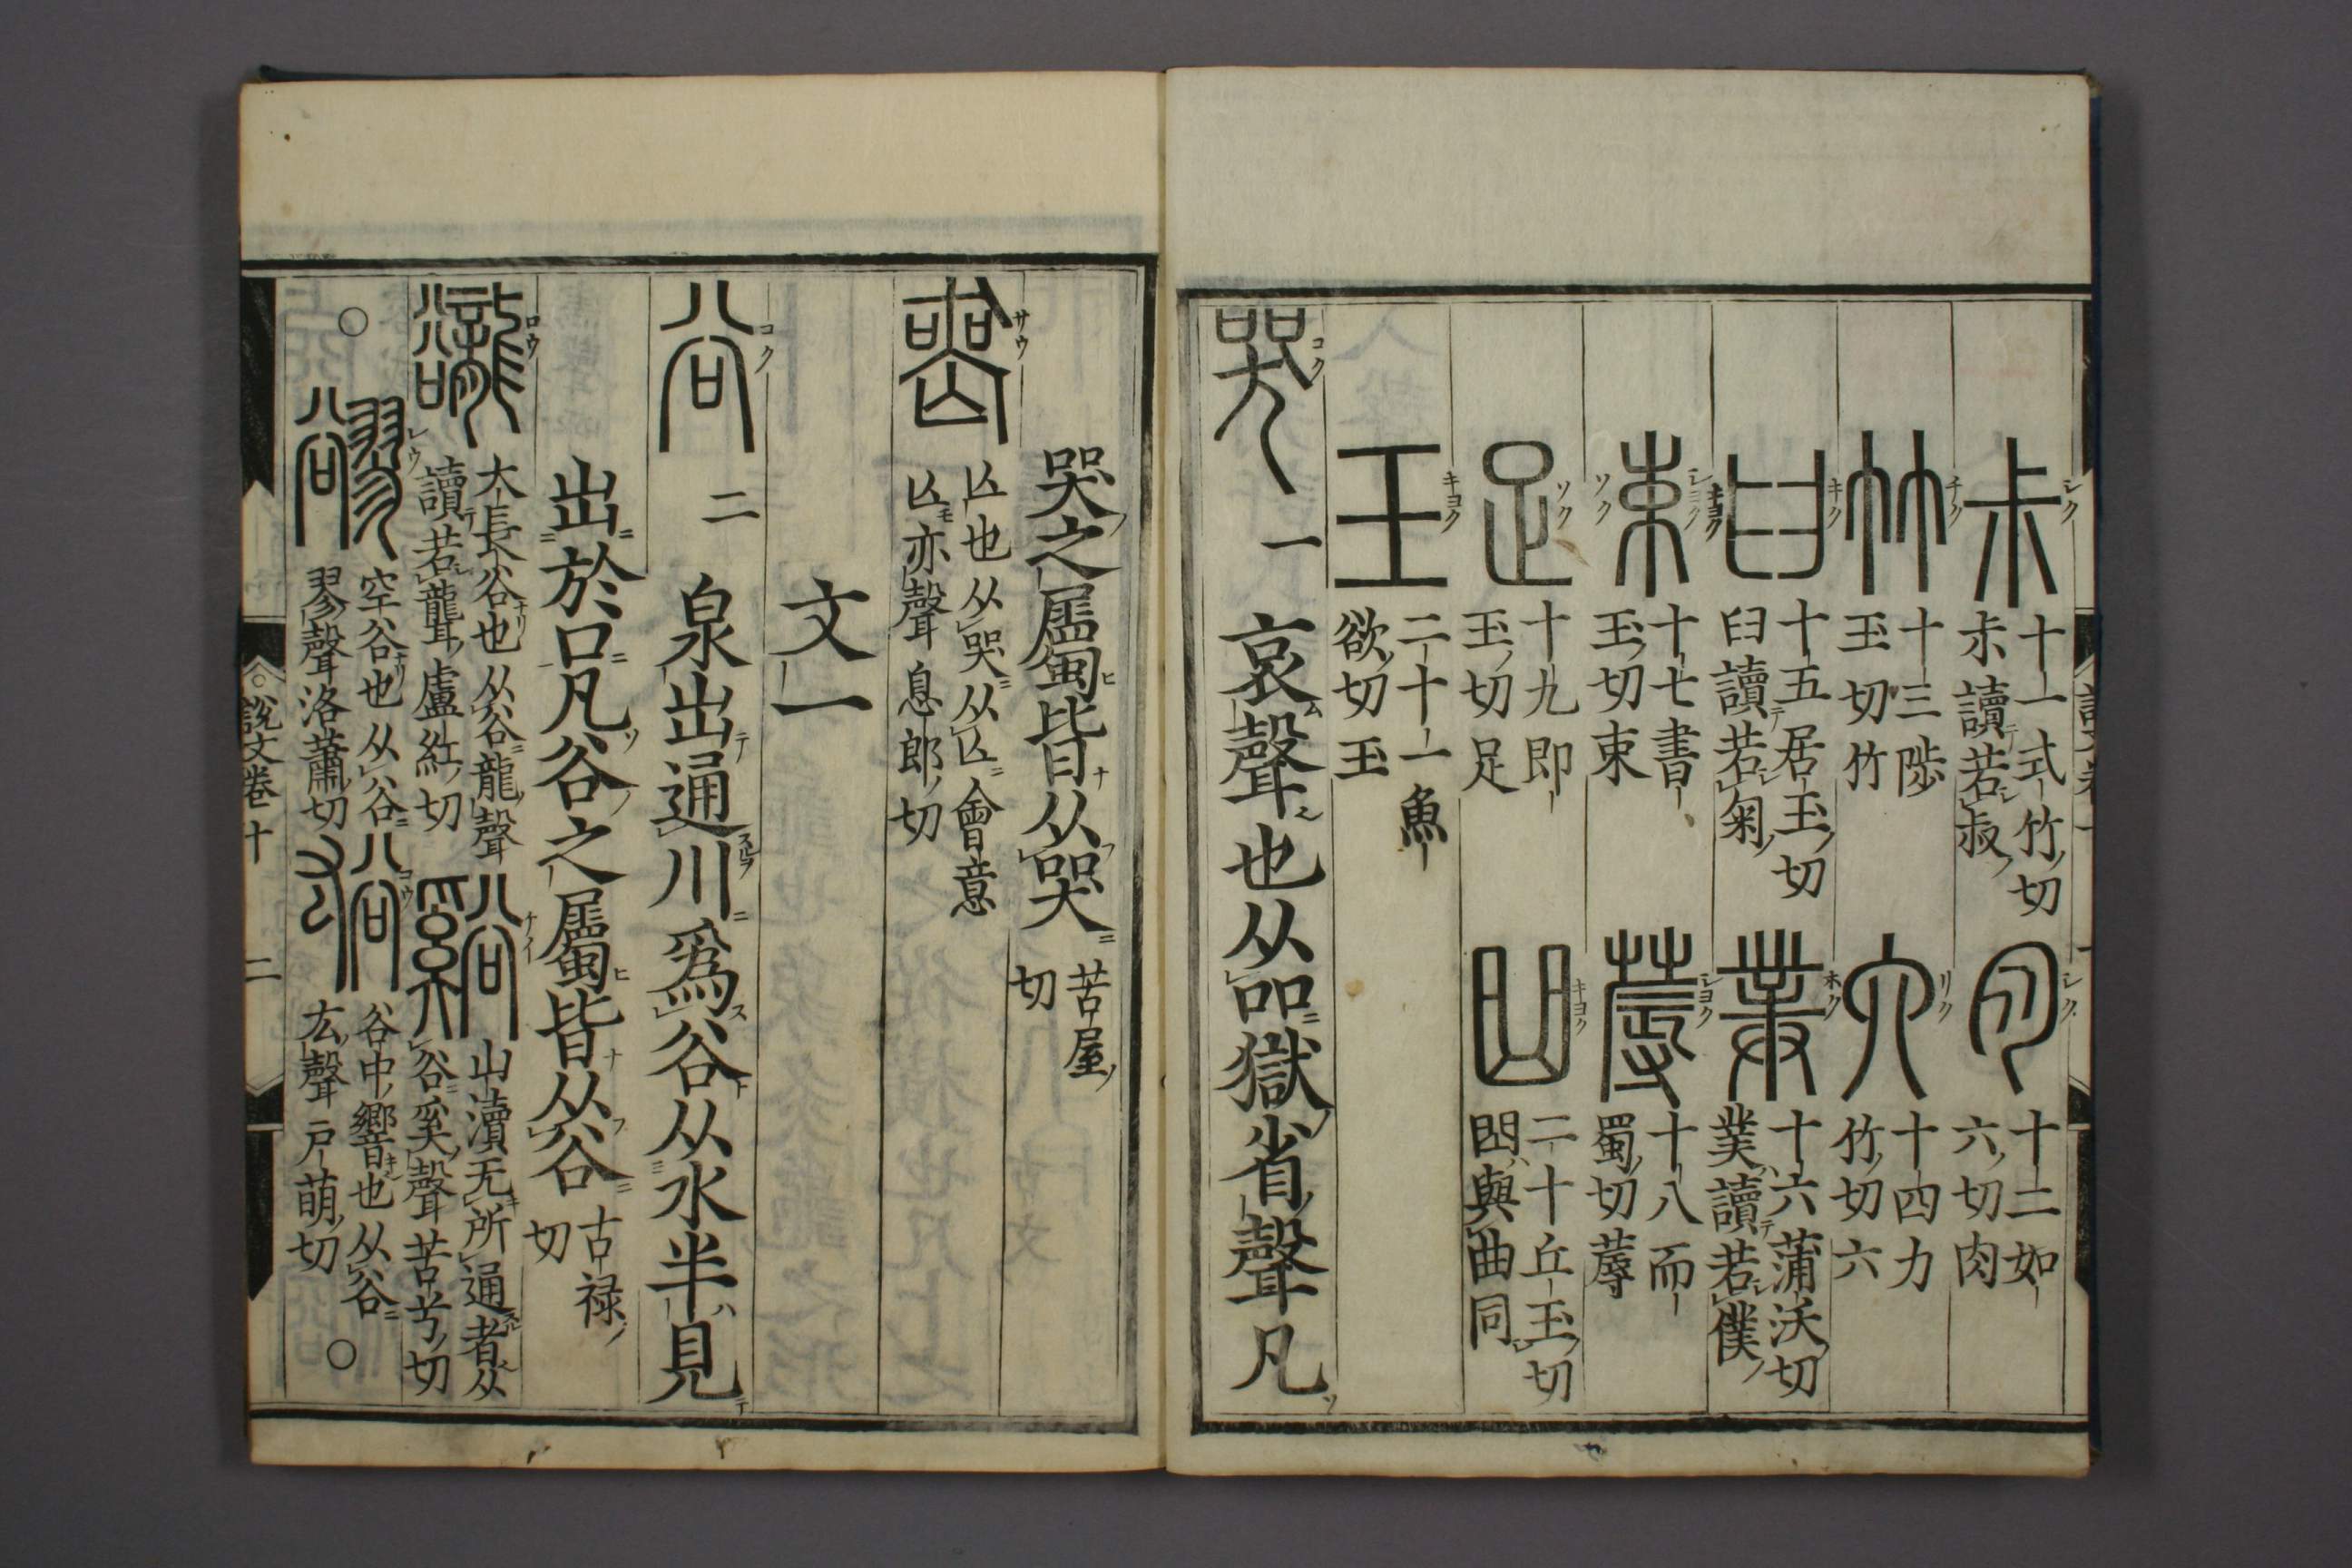 尗 十一式竹切
尗讀若叔
肉 十二如
六切肉
竹 十三陟
玉切竹
六 十四力
竹切六
𦥑 十五居玉切
𦥑讀若匊
菐 十六蒲沃切
菐讀若僕
束 十七書
玉切束
蓐 十八而
蜀切蓐
足 十九即
玉切足
𠚖 二十丘玉切
𠚖與曲同
王 二十一魚
欲切玉
哭 一 哀聲也从吅獄省聲凡
哭之屬皆从哭 苦屋
切
喪 亾也从哭从亾會意
亾亦聲 息郎切
文一
谷 二 泉出通川爲谷从水半見
出於口凡谷之屬皆从谷 古禄
切
谾 大長谷也从谷龍聲
讀若聾盧紅切
谿 山瀆无所通者从
谷奚聲苦兮切
○
豂 空谷也从谷
翏聲洛蕭切
谹 谷中響也从谷
厷聲戸萌切
○
説文卷十 二